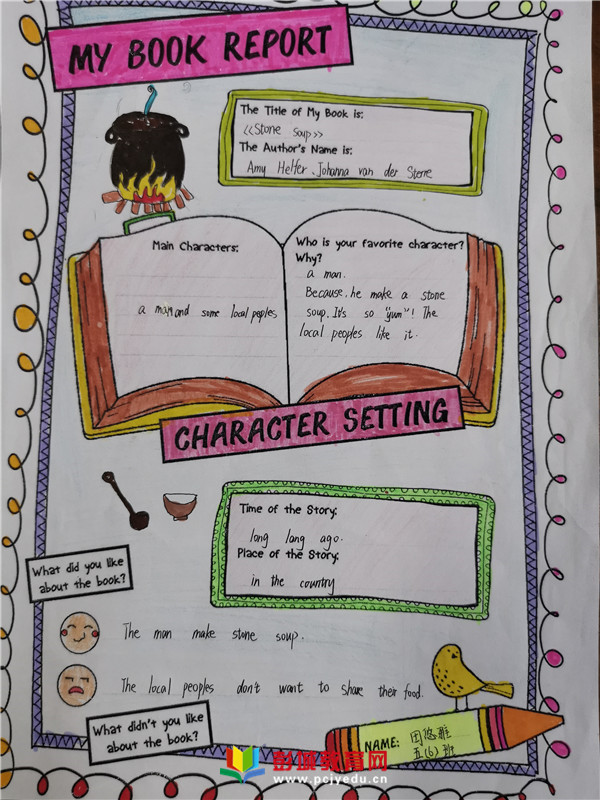 MY BOOK REPORT
The Title of My Book is:
《Stone soup》
The Author's Name is:
Amy Helfer、Johanna van der Sterre
Main Characters:
a man and some local peoples
Who is your favorite character?
Why?
a man.
Because, he make a stone
soup. It's so "yum"! The
local peoples like it.
CHARACTER SETTING
Time of the Story:
long long ago.
Place of the Story:
in the country
What did you like
about the book?
The man make stone soup.
The local peoples don't want to share their food.
What didn't you like
about the book?
NAME: 田悠雅
五(6)班
彭城教育网
www.pcjyedu.cn